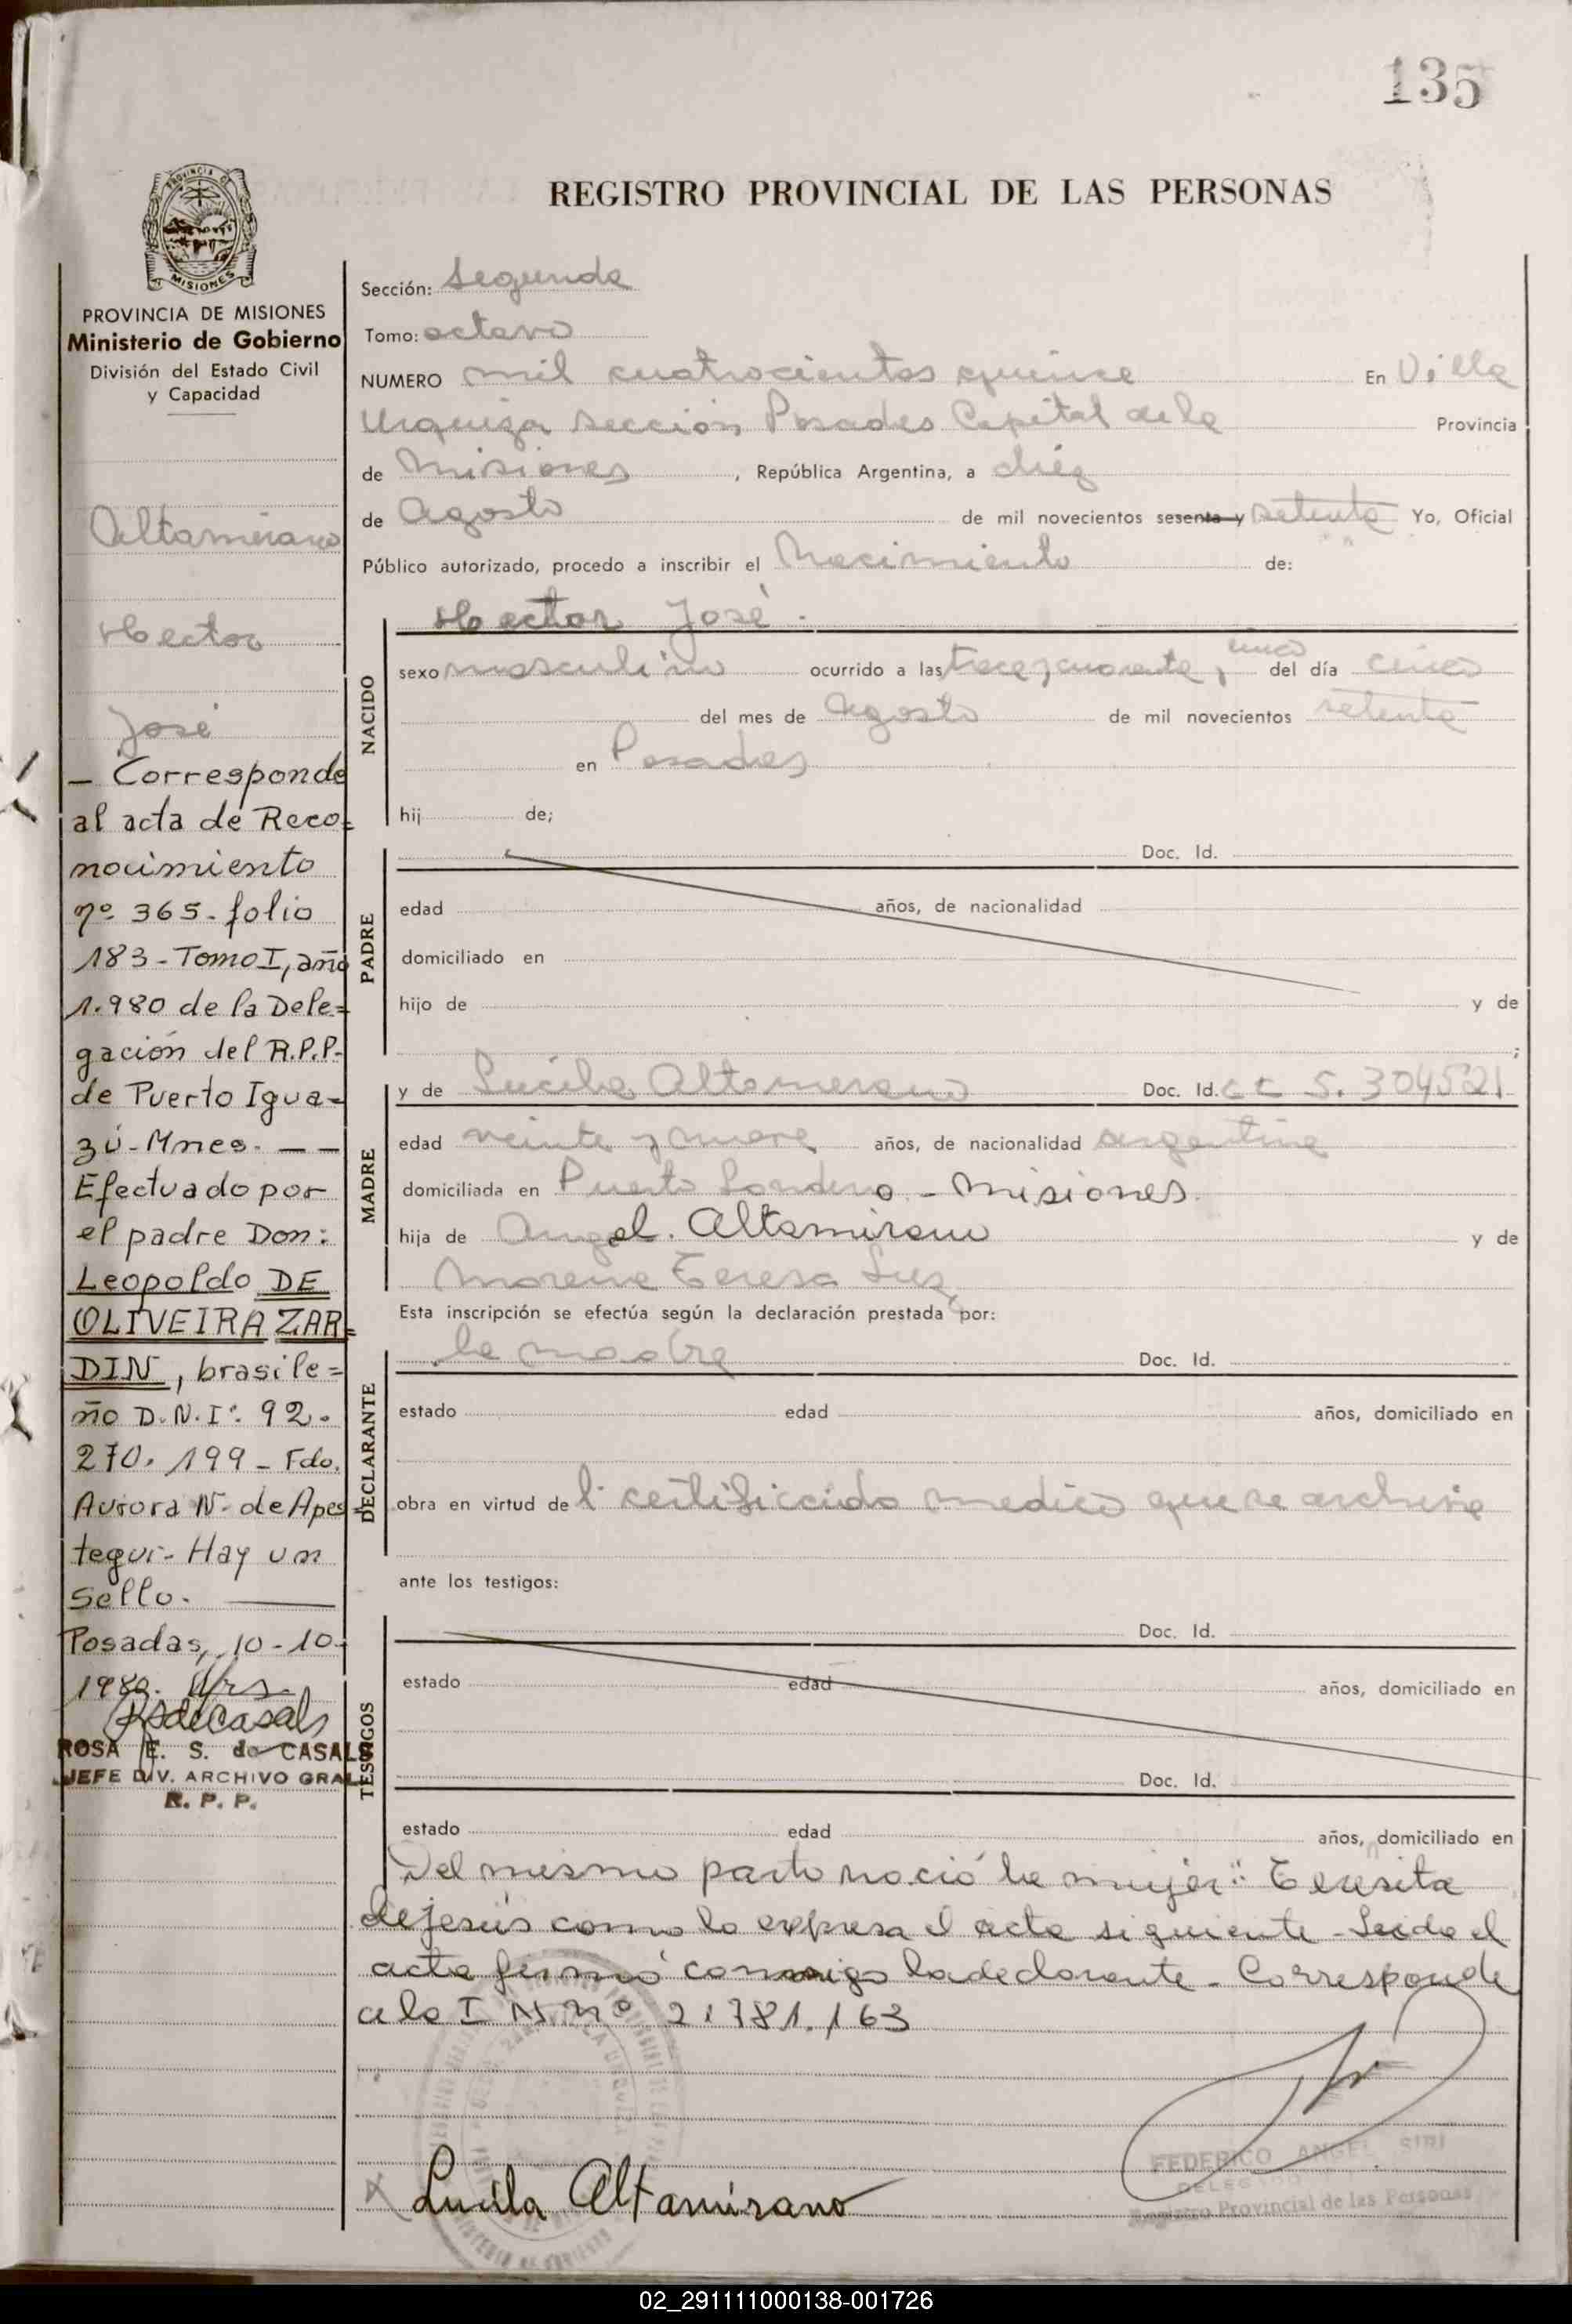 135
PROVINCIA DE MISIONES
REGISTRO PROVINCIAL DE LAS PERSONAS
PROVINCIA DE MISIONES
Ministerio de Gobierno
División del Estado Civil
y Capacidad
Altamirano
Hector
José
– Corresponde
al acta de Reco=
nocimiento
nº 365 - folio
183 - Tomo I, año
1.980 de la Dele=
gación del R.P.P.
de Puerto Igua-
zú - Mnes. — —
Efectuado por
el padre Don:
Leopoldo DE
OLIVEIRA ZAR=
DIN, brasile=
ño D.N.Iº. 92.
270. 199 - Fdo.
Aurora N. de Apes
tegui - Hay un
Sello. ——
Posadas, 10 - 10 -
1980.
ROSA E. S. de CASALS
JEFE DIV. ARCHIVO GRAL.
R. P. P.
Sección: segunda
Tomo: octavo
NUMERO mil cuatrocientos quince En Villa
Urquiza sección Posadas Capital de la Provincia
de Misiones, República Argentina, a diez
de Agosto de mil novecientos sesenta y setenta Yo, Oficial
Público autorizado, procedo a inscribir el Nacimiento de:
NACIDO
Hector José.
sexo masculino ocurrido a las trece y cuarenta y cinco del día cinco
del mes de Agosto de mil novecientos setenta
en Posadas
hij de;
PADRE
Doc. Id.
edad años, de nacionalidad
domiciliado en
hijo de y de
;
MADRE
y de Lucila Altamirano Doc. Id. LC 5.304521
edad veinte y nueve años, de nacionalidad argentina
domiciliada en Puerto - Misiones.
hija de Angel. Altamirano y de
Morena Teresa Luz
Esta inscripción se efectúa según la declaración prestada por:
DECLARANTE
la madre Doc. Id.
estado edad años, domiciliado en
obra en virtud del certificado medico que se archiva
ante los testigos:
TESTIGOS
Doc. Id.
estado edad años, domiciliado en
Doc. Id.
estado edad años, domiciliado en
Del mismo parto nació la mujer: Teresita
de jesús como lo expresa el acta siguiente - Leida el
acta firmó conmigo la declarante - Corresponde
a la I N. nº 21781.163
Lucila Altamirano
FEDERICO ANGEL SIRI
DELEGADO
Registro Provincial de las Personas
02_291111000138-001726